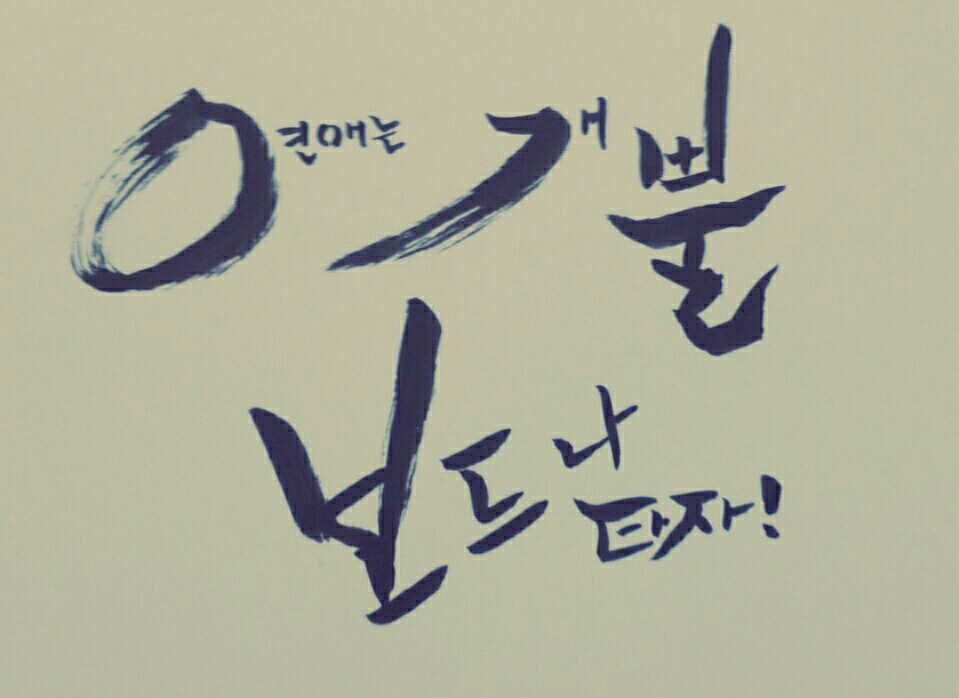 연애는 개뿔
보드나 타자!